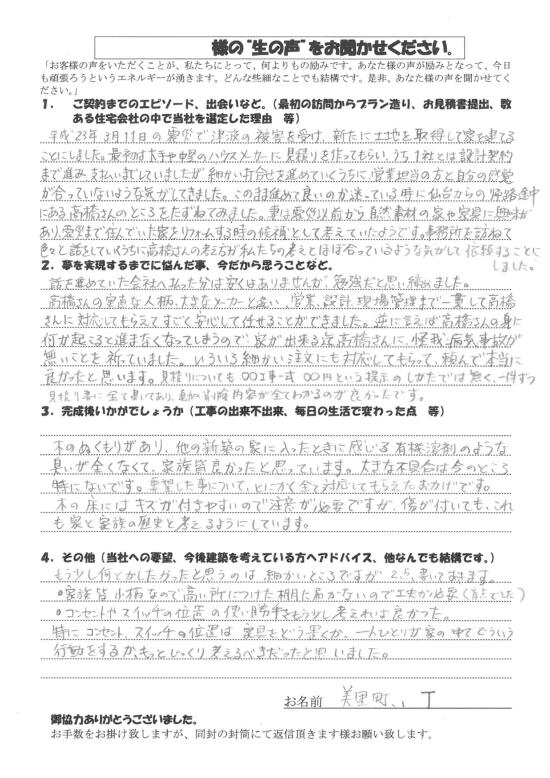 様の“生の声”をお聞かせください。
「お客様の声をいただくことが、私たちにとって、何よりもの励みです。あなた様の声が励みとなって、今日
も頑張ろうというエネルギーが湧きます。どんな些細なことでも結構です。是非、あなた様の声を聞かせてく
ださい。」
1. ご契約までのエピソード、出会いなど。(最初の訪問からプラン造り、お見積書提出、数
ある住宅会社の中で当社を選定した理由 等)
平成23年3月11日の震災で津波の被害を受け、新たに土地を取得して家を建てる
ことにしました。最初は大手や中堅のハウスメーカーに見積りを作ってもらい、うち1社とは設計契約
まで進み支払いまでしていましたが細かい打合せを進めていくうちに、営業担当の方と自分の感覚
が合っていないような気がしてきました。このまま進めて良いのか迷っている時に仙台からの帰路途中
にある高橋さんのところをたずねてみました。妻は震災以前から自然素材の家や家具に興味が
あり、震災まで住んでいた家をリフォームする時の候補として考えていたようです。事務所を訪ねて
色々と話をしていくうちに高橋さんの考え方が私たちの考えとほぼ合っているような気がして依頼することに
しました。
2. 夢を実現するまでに悩んだ事、今だから思うことなど。
話を進めていた会社へ払った分は安くはありませんが、勉強だと思い諦めました。
高橋さんの実直な人柄、大きなメーカーと違い、営業、設計、現場管理まで一貫して高橋
さんに対応してもらえてすごく安心して任せることができました。逆に言えば高橋さんの身に
何か起こると進まなくなってしまうので、家が出来る迄高橋さんに、怪我、病気、事故が
無いことを祈っていました。いろいろ細かい注文にも対応してもらって、頼んで本当に
良かったと思います。見積りについても〇〇工事一式 〇〇円という提示のしかたでは無く、一件ずつ
見積り書に全て書いてあり、追加、削除内容が全てわかるのが良かったです。
3. 完成後いかがでしょうか(工事の出来不出来、毎日の生活で変わった点 等)
木のぬくもりがあり、他の新築の家に入ったときに感じる有機溶剤のような
臭いが全くなくて、家族皆良かったと思っています。大きな不具合は今のところ
特にないです。要望した事について、とにかく全て対応してもらえたおかげです。
木の床にはキズが付きやすいので注意が必要ですが、傷が付いても、これ
も家と家族の歴史と考えるようにしています。
4. その他(当社への要望、今後建築を考えている方へアドバイス、他なんでも結構です。)
もう少し何とかしたかったと思うのは細かいところですが2点、書いておきます。
・家族皆小柄なので高い所につけた棚に届かないので工夫が必要(盲点でした)
・コンセントやスイッチの位置の使い勝手をもう少し考えれば良かった。
特にコンセント、スイッチの位置は家具をどう置くか、一人ひとりが家の中でどういう
行動をするか、もっとじっくり考えるべきだったと思いました。
お名前 美里町、、T
御協力ありがとうございました。
お手数をお掛け致しますが、同封の封筒にて返信頂きます様お願い致します。